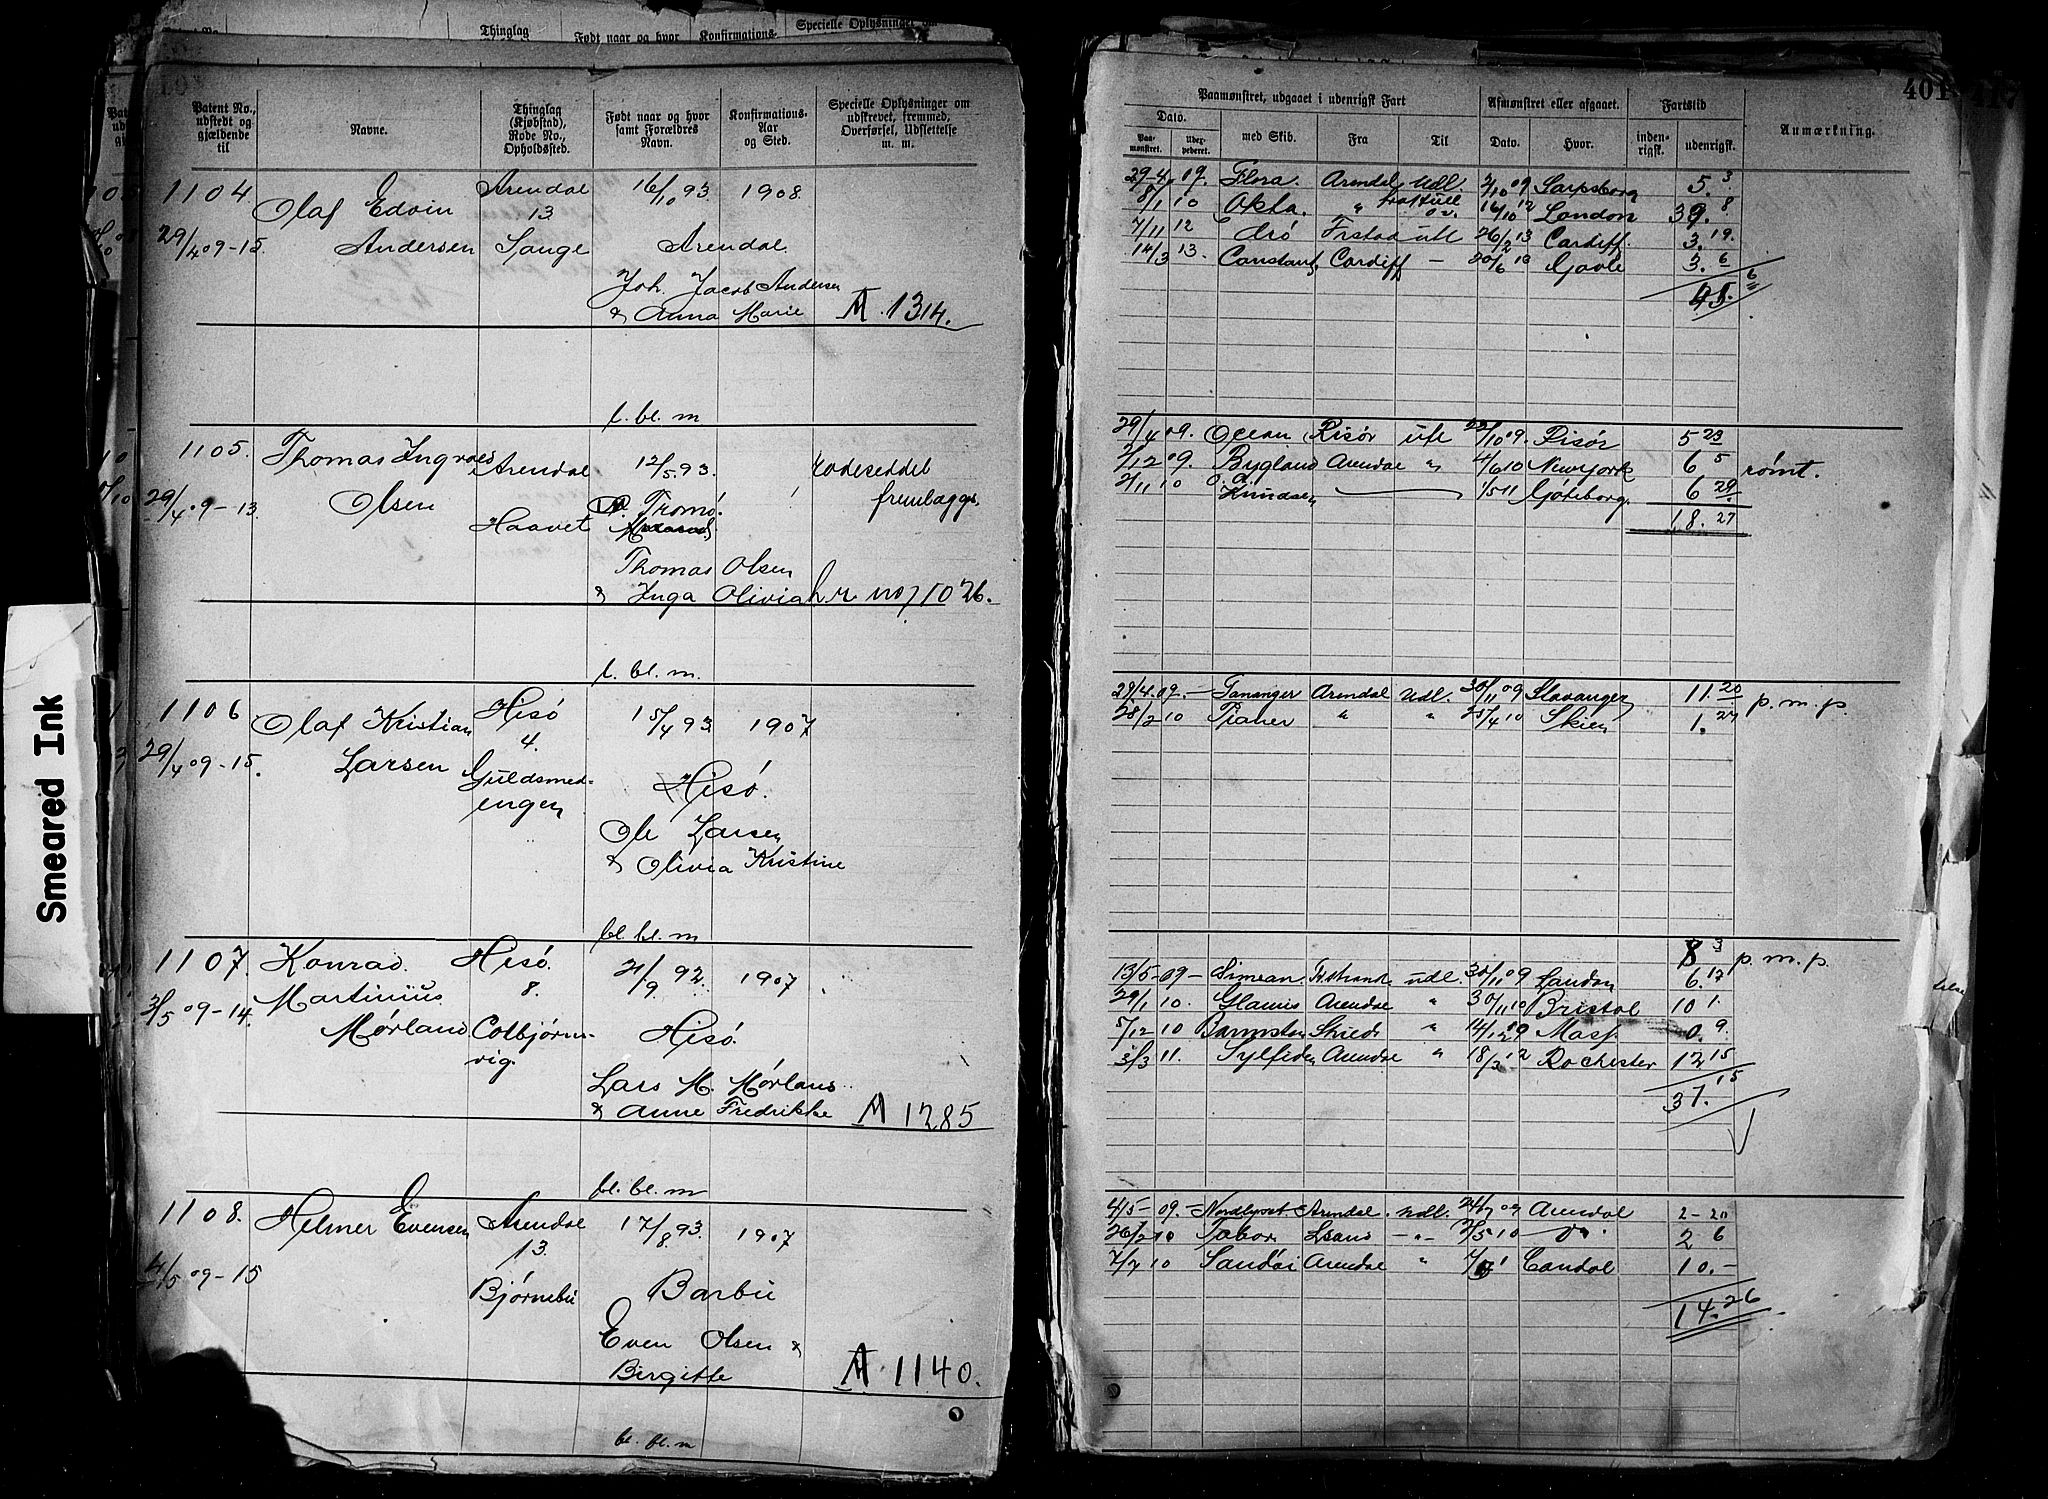 Smeared Ink
Thinglag
Født naar og hvor
Konfirmations-
Specielle Oplysninger om
Patent No.,
udstedt og
gjældende
til
Navne.
Thinglag
(Kjøbstad),
Rode No.,
Opholdssted.
Født naar og hvor
samt Forældres
Navn.
Konfirmations-
Aar
og Sted.
Specielle Oplysninger om
udskrevet, fremmed,
Overførsel, Udslettelse
m. m.
1104
Olaf Edvin
Andersen
29/4 09-15.
Arendal
13
Lange
16/10 93.
1908.
Arendal.
Joh. Jacob Andersen
& Anna Marie
A. 1314.
f. bl. m
1105.
Thomas Ingvald
Olsen
29/4 09-13.
Arendal
Haavet
12/5 93.
Tromø.
Thomas Olsen
& Inga Olivia
rodeseddel
fremlægges
hr no 1026.
f. bl. m.
1106
Olaf Kristian
Larsen
29/4 09-15.
Hisø
4.
Guldsmed-
engen
15/4 93.
1907
Hisø.
Ole Larsen
& Olivia Kristine
bl. bl. m
1107.
Konrad
Martinius
Mørland
3/5 09-14.
Hisø.
8.
Colbjørns-
vig.
21/9 92.
1907
Hisø.
Lars M. Mørland
& Anne Fredrikke
A 1285
bl. bl. m
1108.
Helmer Evensen
4/5 09-15
Arendal
13.
Bjørnebu
17/8 93.
1907
Barbu
Even Olsen &
Birgitte
A. 1140.
bl. bl. m
401
Paamønstret, udgaaet i udenrigsk Fart
Afmønstret eller afgaaet.
Fartstid
Anmærkning.
Dato.
Paa-
mønstret.
med Skib.
Fra
Til
Dato.
Hvor.
inden-
rigsk.
udenrigsk.
29-4 09. Flora. Arendal Udl. 2/10 09 Sarpsborg 5. 3
8/1 10 Okta. " 16/10 12 London 39. 8
7/11 12 Ærø Frstad utl 26/2 13 Cardiff. 3. 19.
14/3 13. Constant, Cardiff — Gavle 3. 6
29/4 09. Ocean Risør utl 22/10 09. Risør 5 23
2/12 09. Bygland Arendal " 4/6 10 New York 6 5 rømt.
2/11 10 O. A. Knudsen 1/5 11 Göteborg. 6 29
18. 27
29/4. 09. - Tananger Arendal Udl. 30/11 09 Stavanger 11. 20 p. m. p.
28/2 10 Pioner " " 25/4 10 Skien 1. 27
8 3 p. m. p.
13/5-09- Simean. udl. 30/11 09 London 6. 12
29/1 10. Glamis Arendal " 30/11 10 Bristol 10 1.
5/12 10 Skieds " Masf. 0. 9.
3/3 11. Sylfiden Arendal " 18/3 12 Rochester 12 15
37. 15
4/5-09. Nordlyset Arendal. Udl. 24/7 09 Arendal 2-20
26/2 10 Tabor -"- 2/5 10 do. 2 6
7/7 10 Arendal " 10.-
14. 26